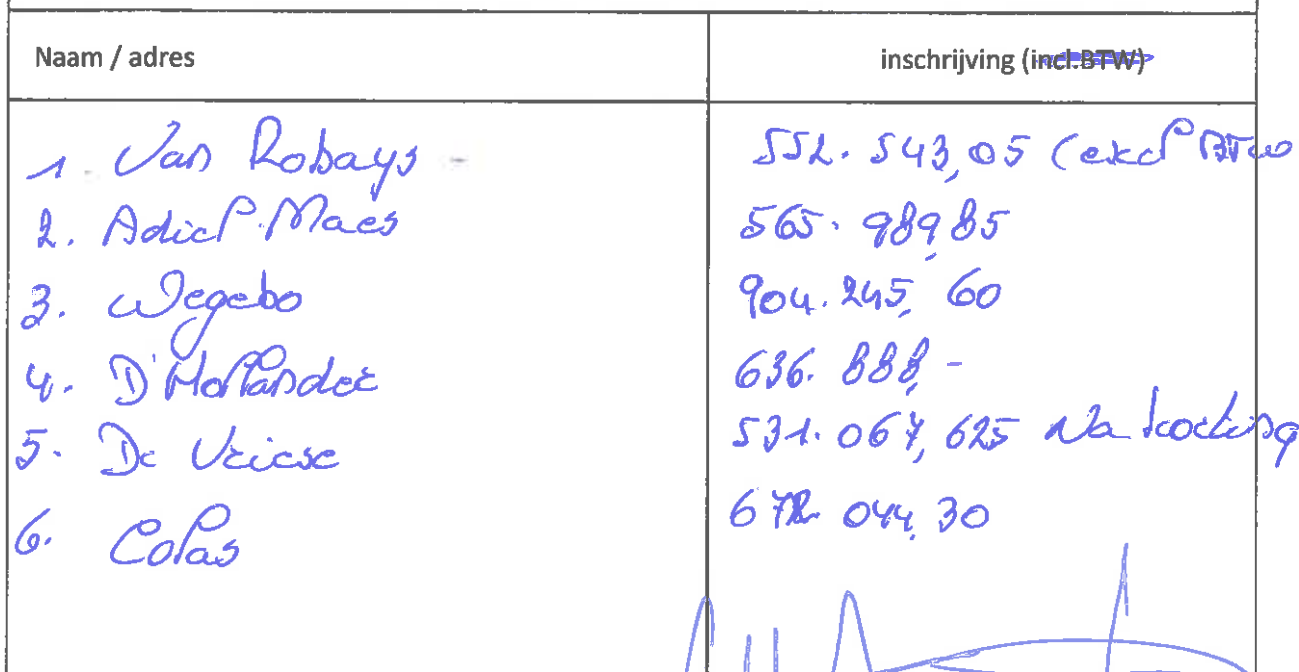 Naam / adres inschrijving (incl.BTW)
1. Van Robays - 552.543,05 (excl BTW
2. Adiel Maes 565.989,85
3. Wegebo 904.245,60
4. D'Hollander 636.888,-
5. De Vriese 531.067,625 Na korting
6. Colas 672.044,30